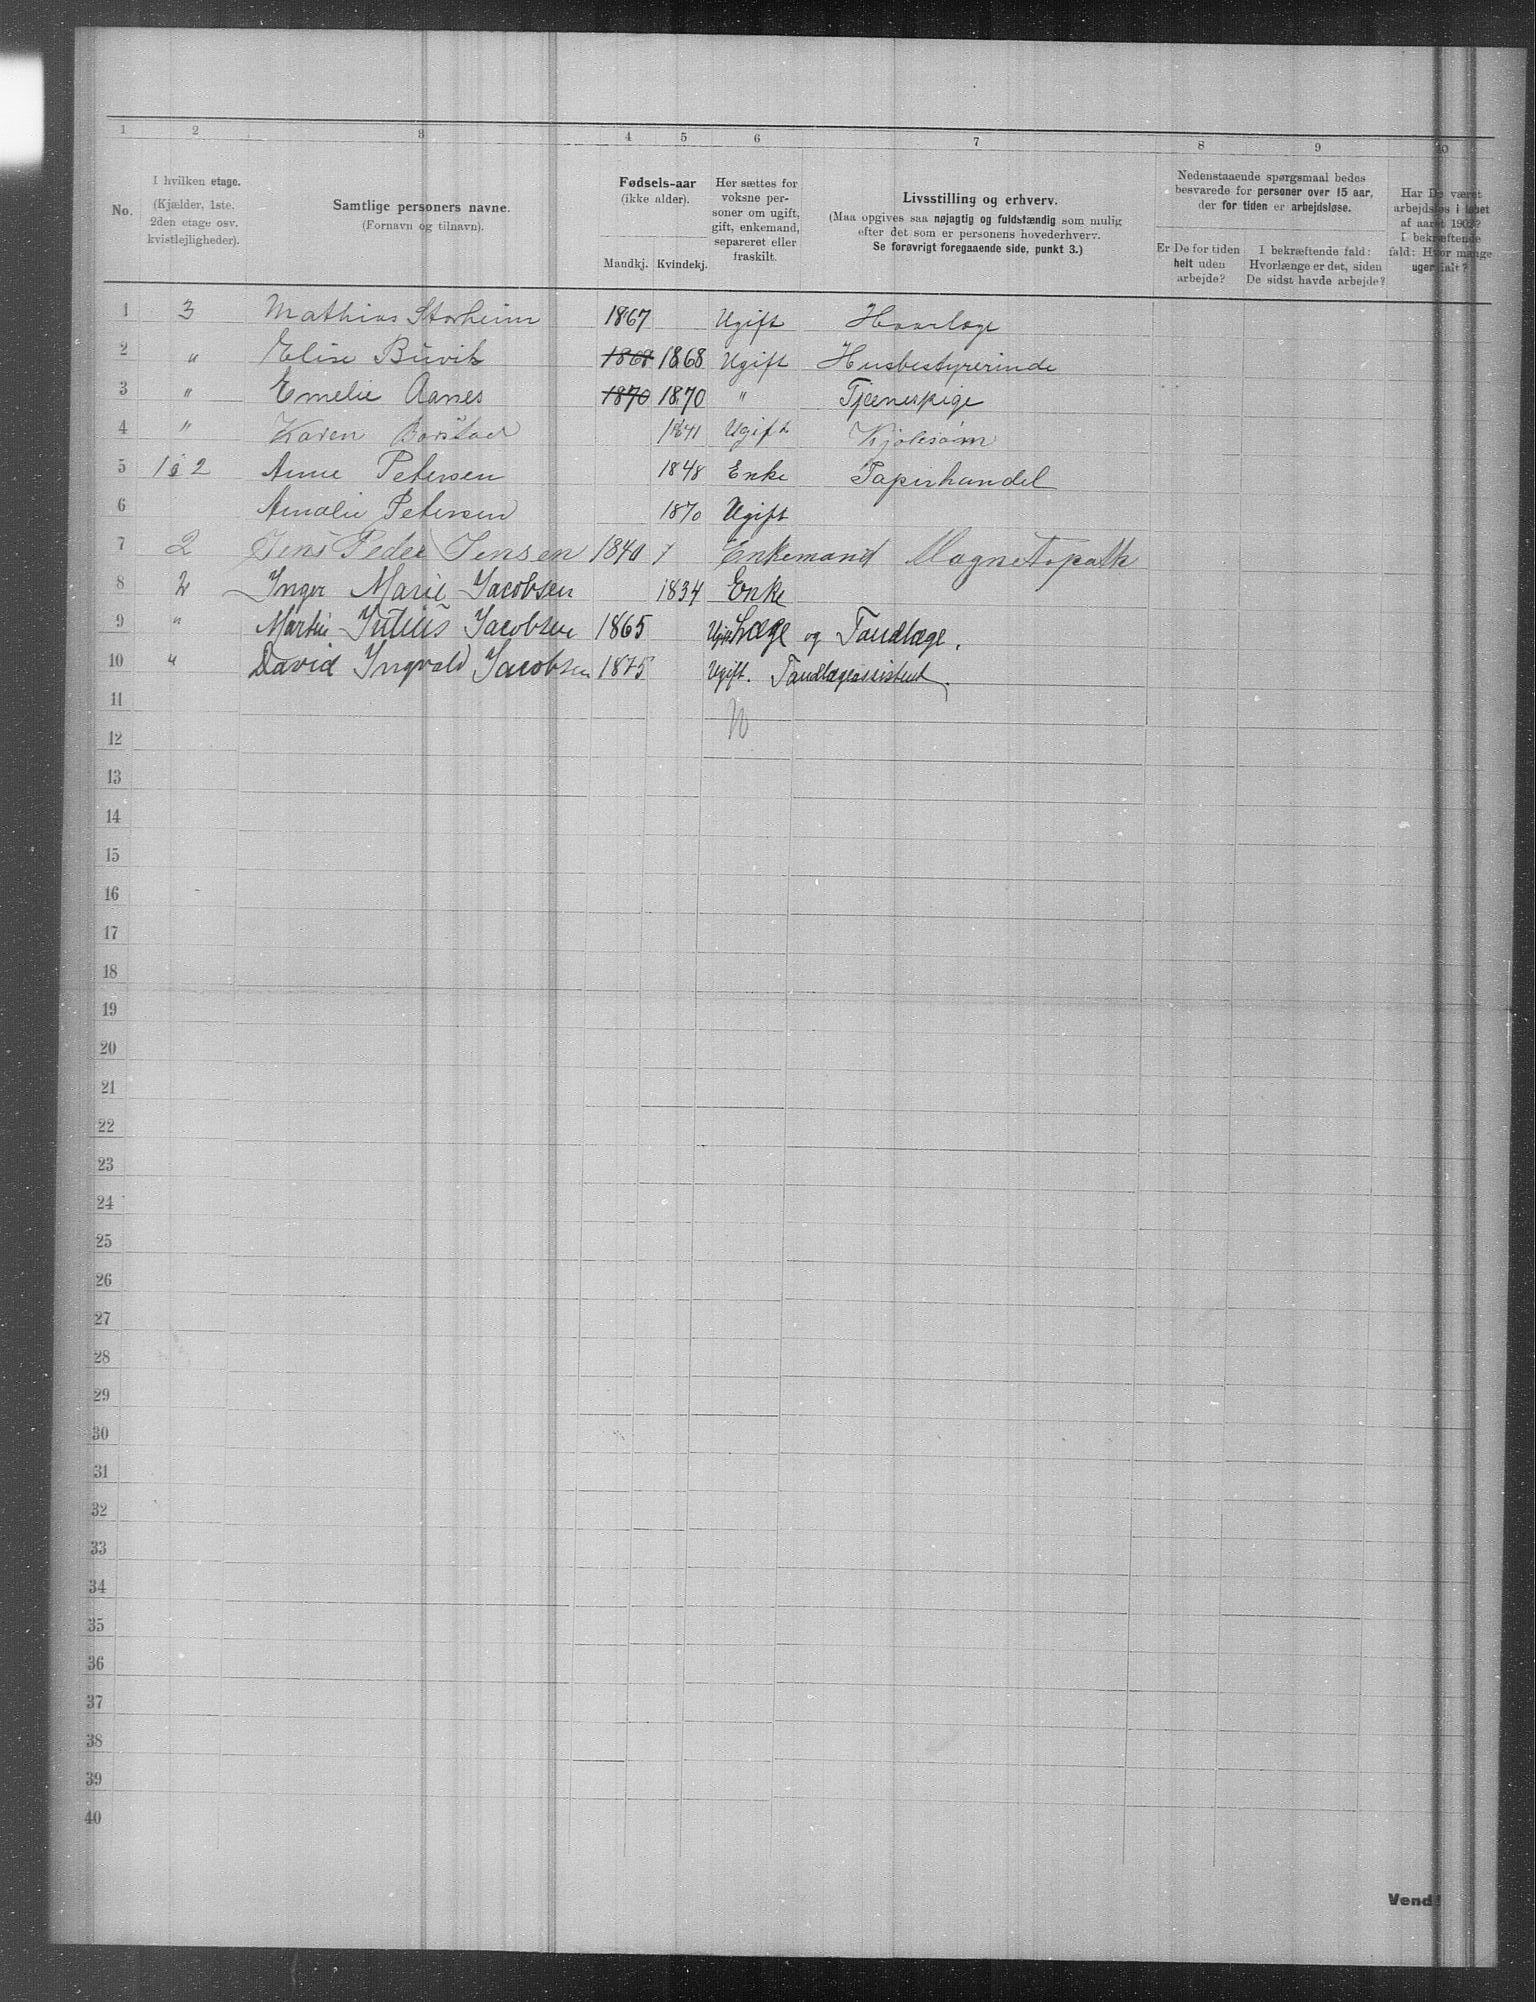 1 2 3 4 5 6 7 8 9 10
No.
I hvilken etage.
(Kjælder, 1ste.
2den etage osv.
kvistlejligheder).
Samtlige personers navne.
(Fornavn og tilnavn).
Fødsels-aar
(ikke alder).
Mandkj. Kvindekj.
Her sættes for
voksne per-
soner om ugift,
gift, enkemand,
separeret eller
fraskilt.
Livsstilling og erhverv.
(Maa opgives saa nøjagtig og fuldstændig som mulig
efter det som er personens hovederhverv.
Se forøvrigt foregaaende side, punkt 3.)
Nedenstaaende spørgsmaal bedes
besvarede for personer over 15 aar,
der for tiden er arbejdsløse.
Er De for tiden
helt uden
arbejde?
I bekræftende fald:
Hvorlænge er det, siden
De sidst havde arbejde?
Har De været
arbejdsløs i løbet
af aaret 1902?
I bekræftende
fald: Hvor mange
uger ialt?
1 3 Mathias Storheim 1867 Ugift
2 " Elise Buvik 1868 1868 Ugift Husbestyrerinde
3 " Emelie Aanes 1870 1870 " Tjenespige
4 " Karen Borstad 1841 Ugift Kjolesøm
5 1 & 2 Anne Petersen 1848 Enke Papirhandel
6 Amalie Petersen 1870 Ugift
7 2 Jens Peder Jensen 1840 Enkemand Magnetopath
8 2 Inger Marie Jacobsen 1834 Enke
9 " Martin Julius Jacobsen 1865 Ugift Læge og Tandlæge.
10 " David Ingvald Jacobsen 1875 Ugift. Tandlægeassistent.
11
12
13
14
15
16
17
18
19
20
21
22
23
24
25
26
27
28
29
30
31
32
33
34
35
36
37
38
39
40
Vend!